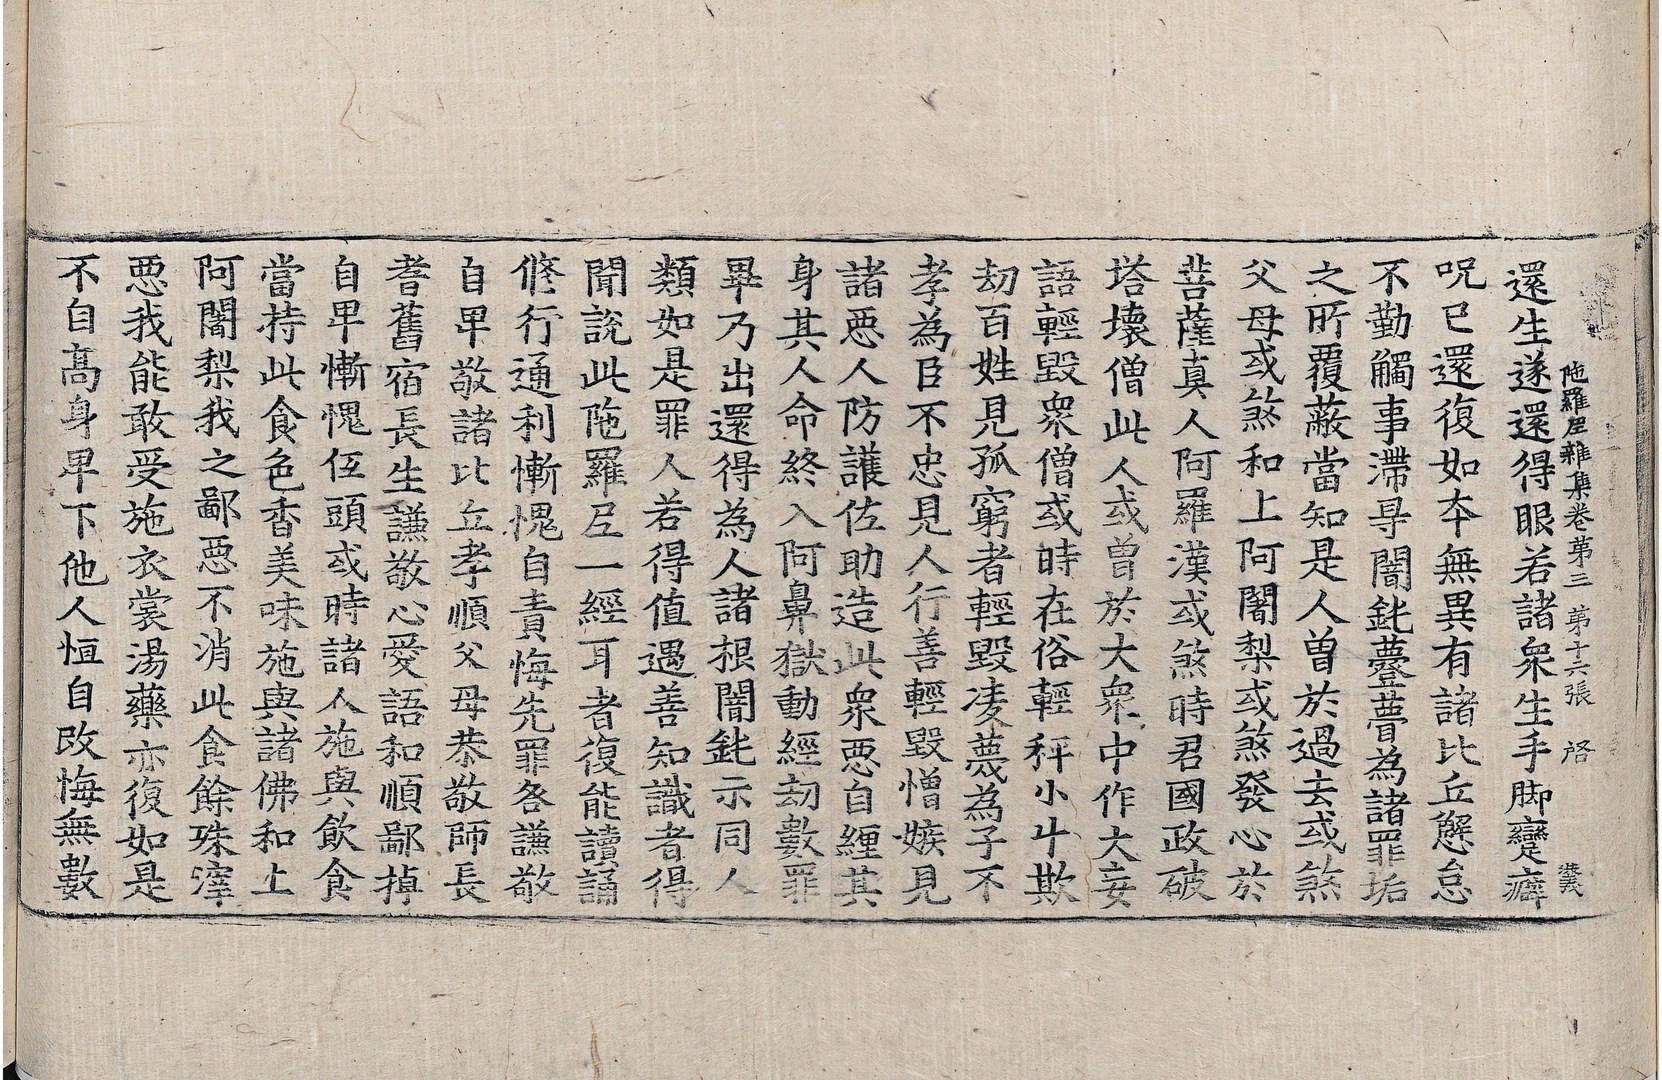 陁羅尼雜集卷第三 第十六張 啓
還生遂還得眼若諸衆生手脚癴癖
呪已還復如本無異有諸比丘懈怠
不勤觸事滯㝵闇鈍薹瞢為諸罪垢
之所覆蔽當知是人曽於過去或煞
父母或煞和上阿闍梨或煞發心於
菩薩真人阿羅漢或煞時君國政破
塔壞僧此人或曽於大衆中作大妄
語輕毀衆僧或時在俗輕秤小斗欺
劫百姓見孤窮者輕毀凌薎為子不
孝為臣不忠見人行善輕毀憎嫉見
諸惡人防護佐助造此衆惡自纏其
身其人命終入阿鼻獄動經劫數罪
畢乃出還得為人諸根闇鈍示同人
類如是罪人若得值遇善知識者得
聞說此陁羅尼一經耳者復能讀誦
修行通利慚愧自責悔先罪咎謙敬
自卑敬諸比丘孝順父母恭敬師長
耆舊宿長生謙敬心愛語和順鄙掉
自卑慚愧伍頭或時諸人施與飲食
當持此食色香美味施與諸佛和上
阿闍梨我之鄙惡不消此食餘殊滓
惡我能敢受施衣裳湯藥亦復如是
不自高身卑下他人恒自改悔無數